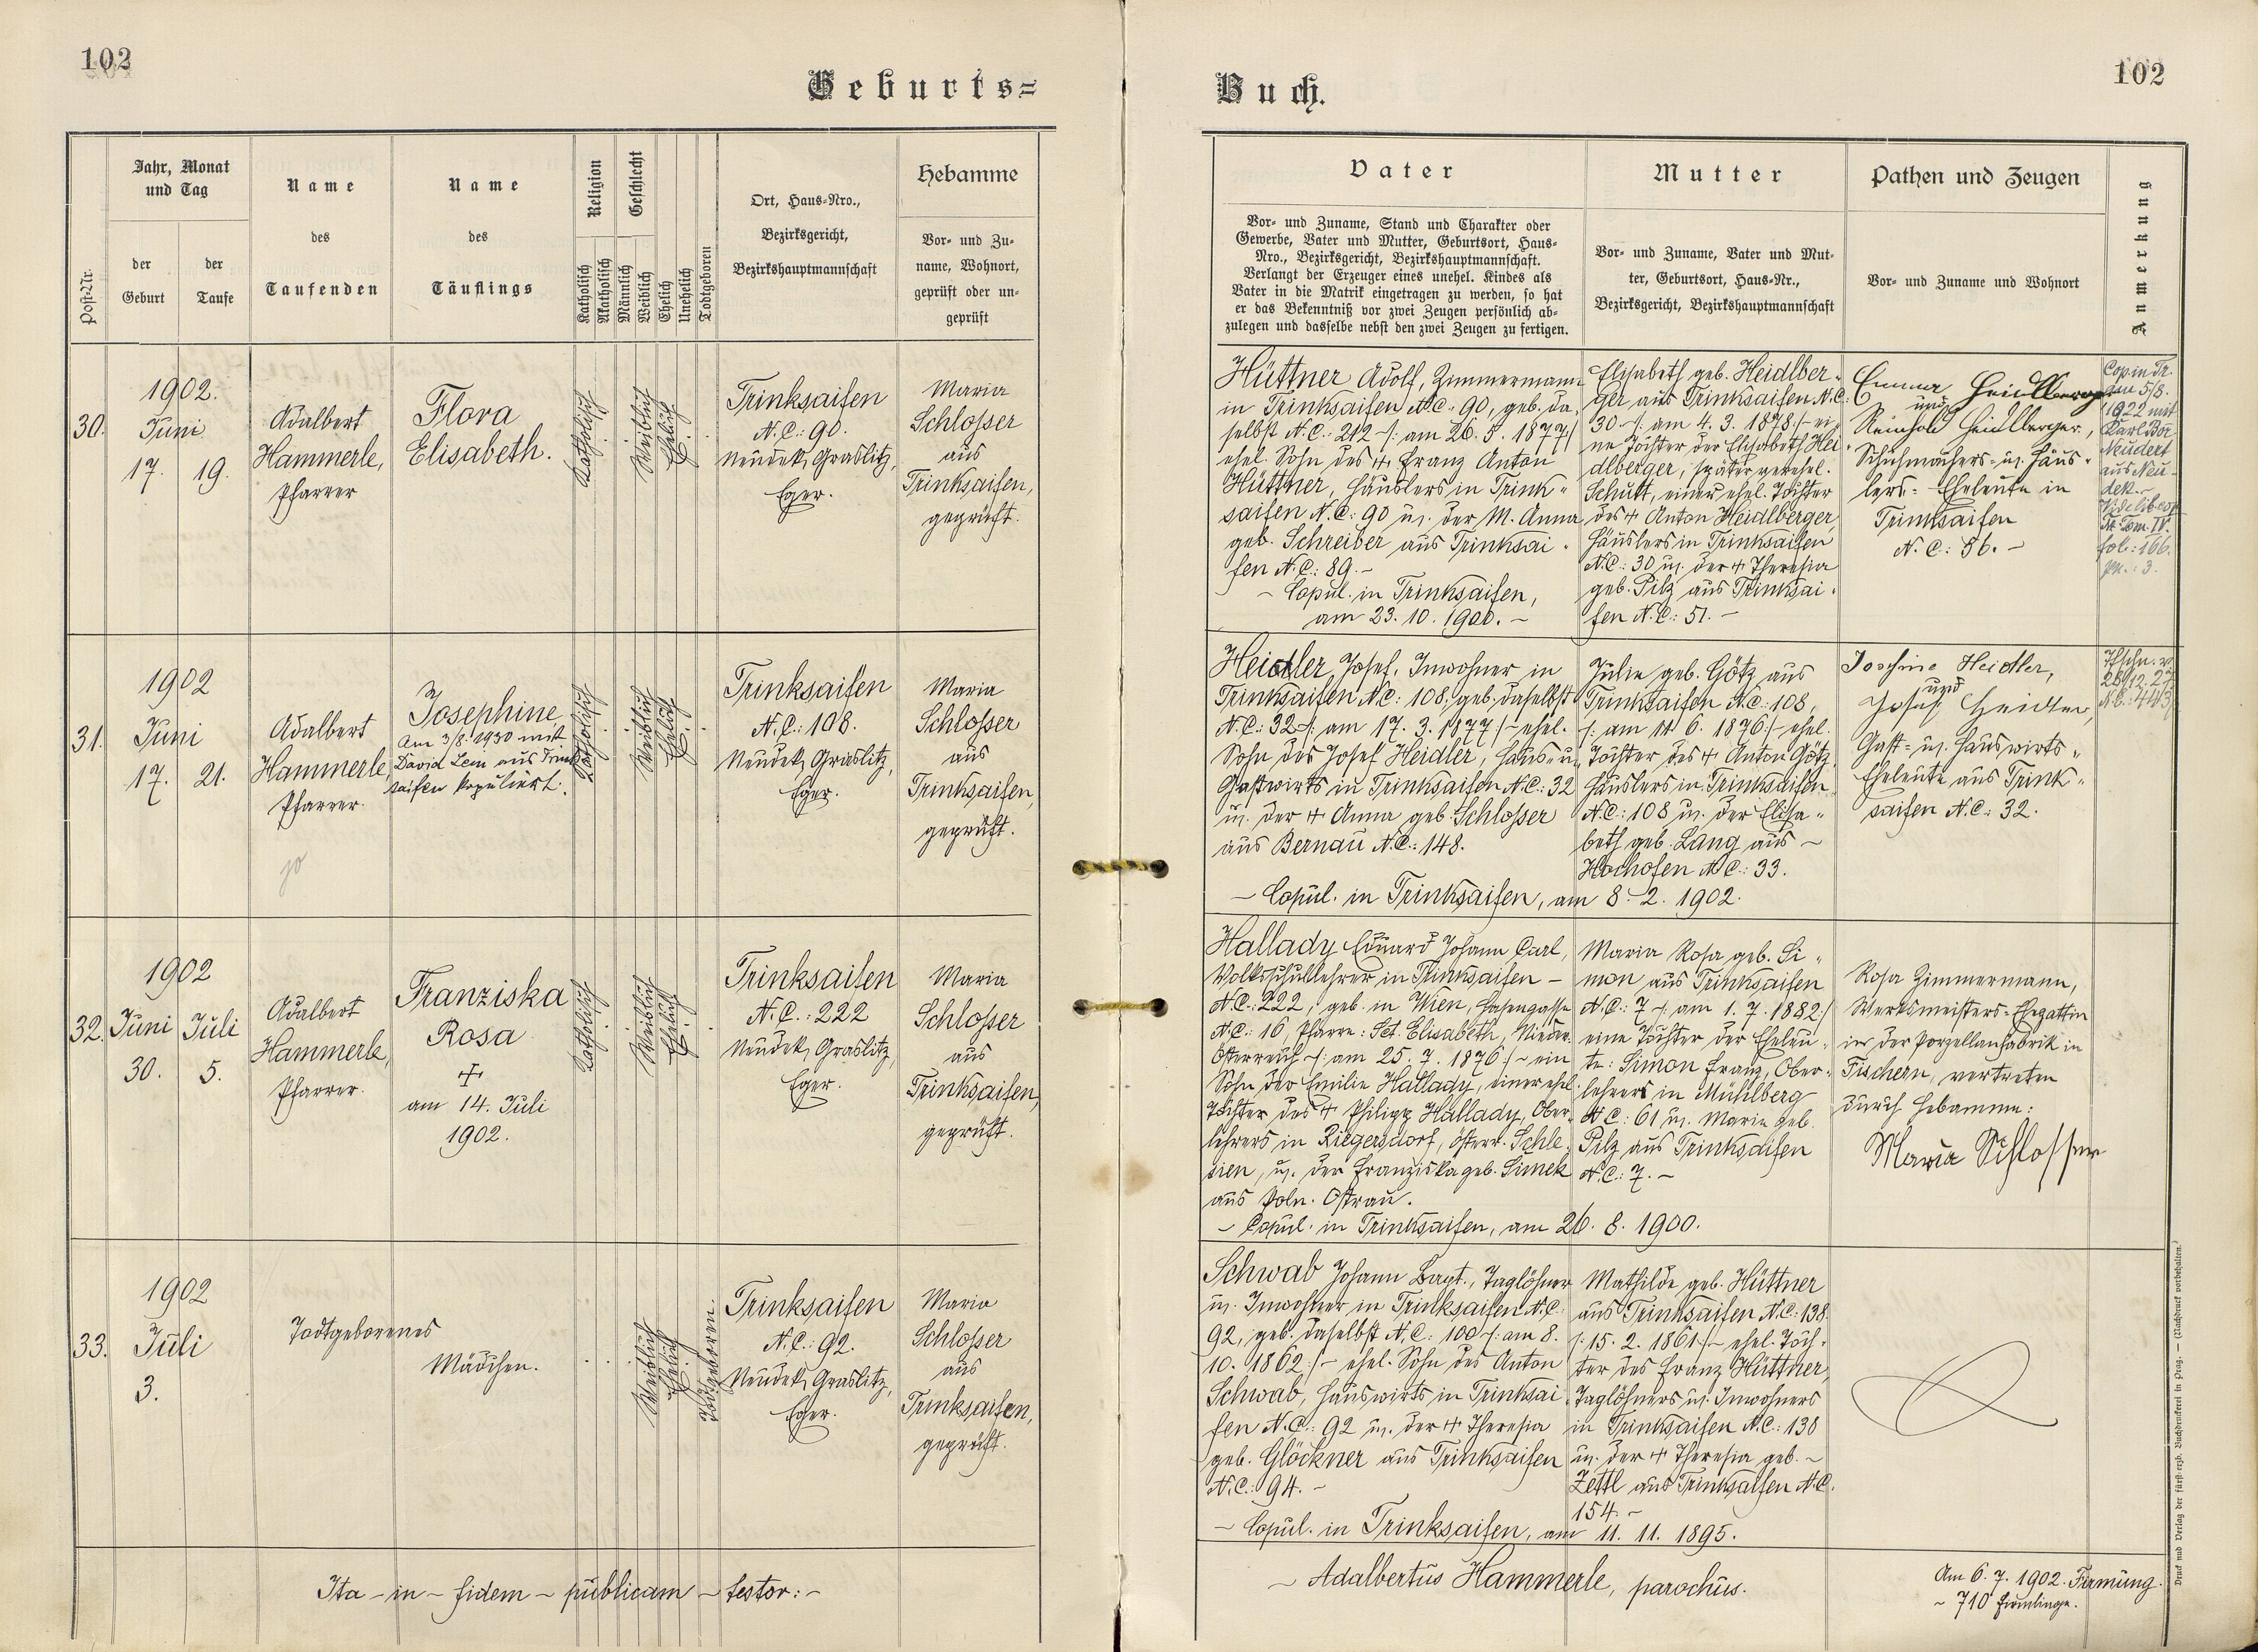 102
Geburts=
Post-Nr.
Jahr, Monat
und Tag
der
Geburt
der
Taufe
Name
des
Taufenden
Name
des
Täuflings
Religion
Katholisch
Akatholisch
Geschlecht
Männlich
Weiblich
Ehelich
Unehelich
Todtgeboren
Ort, Haus=Nro.,
Bezirksgericht,
Bezirkshauptmannschaft
Hebamme
Vor= und Zu=
name, Wohnort,
geprüft oder un=
geprüft
30.
1902.
Juni
17. 19.
Adalbert
Hammerle,
Pfarrer
Flora
Elisabeth.
Katholisch
Weiblich
Ehelich
Trinksaifen
N.C.: 90.
Neudek, Graslitz,
Eger.
Maria
Schlosser
aus
Trinksaifen,
geprüft.
31.
1902
Juni
17. 21.
Adalbert
Hammerle,
Pfarrer.
Josephine,
Am 3/8. 1930 mit
David Lein aus Trink
saifen kopuliert.
Katholisch
Weiblich
Ehelich
Trinksaifen
N.C.: 108.
Neudek, Graslitz,
Eger.
Maria
Schlosser
aus
Trinksaifen,
geprüft.
32.
1902
Juni Juli
30. 5.
Adalbert
Hammerle,
Pfarrer.
Franziska
Rosa
am 14. Juli
1902.
Katholisch
Weiblich
Ehelich
Trinksaifen
N.C.: 222
Neudek, Graslitz,
Eger.
Maria
Schlosser
aus
Trinksaifen,
geprüft.
33.
1902
Juli
3.
Todtgeborenes
Mädchen.
Weiblich
Ehelich
Todtgeboren.
Trinksaifen
N.C.: 92.
Neudek, Graslitz,
Eger.
Maria
Schlosser
aus
Trinksaifen,
geprüft.
Ita – in – fidem – publicam – testor: –
Buch.
102
Vater
Vor= und Zuname, Stand und Charakter oder
Gewerbe, Vater und Mutter, Geburtsort, Haus=
Nro., Bezirksgericht, Bezirkshauptmannschaft.
Verlangt der Erzeuger eines unehel. Kindes als
Vater in die Matrik eingetragen zu werden, so hat
er das Bekenntniß vor zwei Zeugen persönlich ab=
zulegen und dasselbe nebst den zwei Zeugen zu fertigen.
Mutter
Vor= und Zuname, Vater und Mut=
ter, Geburtsort, Haus=Nr.,
Bezirksgericht, Bezirkshauptmannschaft
Pathen und Zeugen
Vor= und Zuname und Wohnort
Anmerkung
Hüttner Adolf, Zimmermann
in Trinksaifen N.C.: 90, geb. da=
selbst N.C.: 242 /: am 26. 5. 1877 :/
ehel. Sohn des + Franz Anton
Hüttner, Häuslers in Trink=
saifen N.C.: 90 u. der M. Anna
geb. Schreiber aus Trinksai=
fen N.C.: 89. –
– Copul. in Trinksaifen,
am 23. 10. 1900. –
Elisabeth geb. Heidlber=
ger aus Trinksaifen N.C.
30 /: am 4. 3. 1878 :/ ei=
ne Tochter der Elisabeth Hei
dlberger, später verehel.
Schutt, einer ehel. Tochter
des + Anton Heidlberger,
Häuslers in Trinksaifen
N.C.: 30 u. der + Theresia
geb. Pilz aus Trinksai=
fen N.C.: 51. –
Emma Heidlberger
und
Reinhold Heidlberger,
Schuhmachers= u. Häus=
lers= Eheleute in
Trinksaifen
N.C.: 86. –
Cop. in Tr.
am 5/8.
1922 mit
Karl Bor
Neudert
aus Neu=
dek. –
Tom. IV.
fol.: 166.
pn.: 3.
Heidler Josef, Inwohner in
Trinksaifen N.C.: 108, geb. daselbst
N.C.: 32 /: am 17. 3. 1877 :/ – ehel.
Sohn des Josef Heidler, Haus= u.
Gastwirts in Trinksaifen N.C.: 32
u. der + Anna geb. Schlosser
aus Bernau N.C.: 148.
Julie geb. Götz aus
Trinksaifen N.C.: 108,
/: am 11. 6. 1876 :/ ehel.
Tochter des + Anton Götz,
Häuslers in Trinksaifen
N.C.: 108 u. der Elisa=
beth geb. Lang aus –
Hochofen N.C.: 33.
– Copul. in Trinksaifen, am 8. 2. 1902.
Josefine Heidler,
und
Josef Heidler,
Gast= u. Hauswirts=
Eheleute aus Trink=
saifen N.C.: 32.
Hallady Eduard Johann Carl,
Volksschullehrer in Trinksaifen –
N.C.: 222, geb. in Wien, Hasengasse
N.C.: 16, Pfarre: Sct. Elisabeth, Nieder=
Österreich /: am 25. 7. 1876 :/ – ein
Sohn der Emilie Hallady, einer ehel.
Tochter des + Philipp Hallady, Ober=
lehrers in Riegersdorf, österr. Schle=
sien, u. der Franziska geb. Simek
aus Poln. Ostrau.
– Copul. in Trinksaifen, am 26. 8. 1900.
Maria Rosa geb. Si=
mon aus Trinksaifen
N.C.: 7 /: am 1. 7. 1882 :/
eine Tochter der Eheleu=
te: Simon Franz, Ober=
lehrers in Mühlberg
N.C.: 61 u. Marie geb.
Pilz aus Trinksaifen
N.C.: 7. –
Rosa Zimmermann,
Werksmeisters=Ehegattin
in der Porzellanfabrik in
Fischern, vertreten
durch Hebamme:
Maria Schlosser
Schwab Johann Bapt., Taglöhner
u. Inwohner in Trinksaifen N.C.
92, geb. daselbst N.C.: 100 /: am 8.
10. 1862 :/ – ehel. Sohn des Anton
Schwab, Hauswirts in Trinksai
fen N.C.: 92 u. der + Theresia
geb. Glöckner aus Trinksaifen
N.C.: 94. –
Mathilde geb. Hüttner
aus Trinksaifen N.C.: 138
/: 15. 2. 1861 :/ – ehel. Toch=
ter des Franz Hüttner,
Taglöhners u. Inwohners
in Trinksaifen N.C.: 138
u. der + Theresia geb. –
Zettl aus Trinksaifen N.C.
154. –
– Copul. in Trinksaifen, am 11. 11. 1895.
– Adalbertus Hammerle, parochus.
Am 6. 7. 1902. Firmung.
– 710 Firmlinge.
Druck und Verlag der fürst=erzb. Buchdruckerei in Prag. — (Nachdruck vorbehalten.)